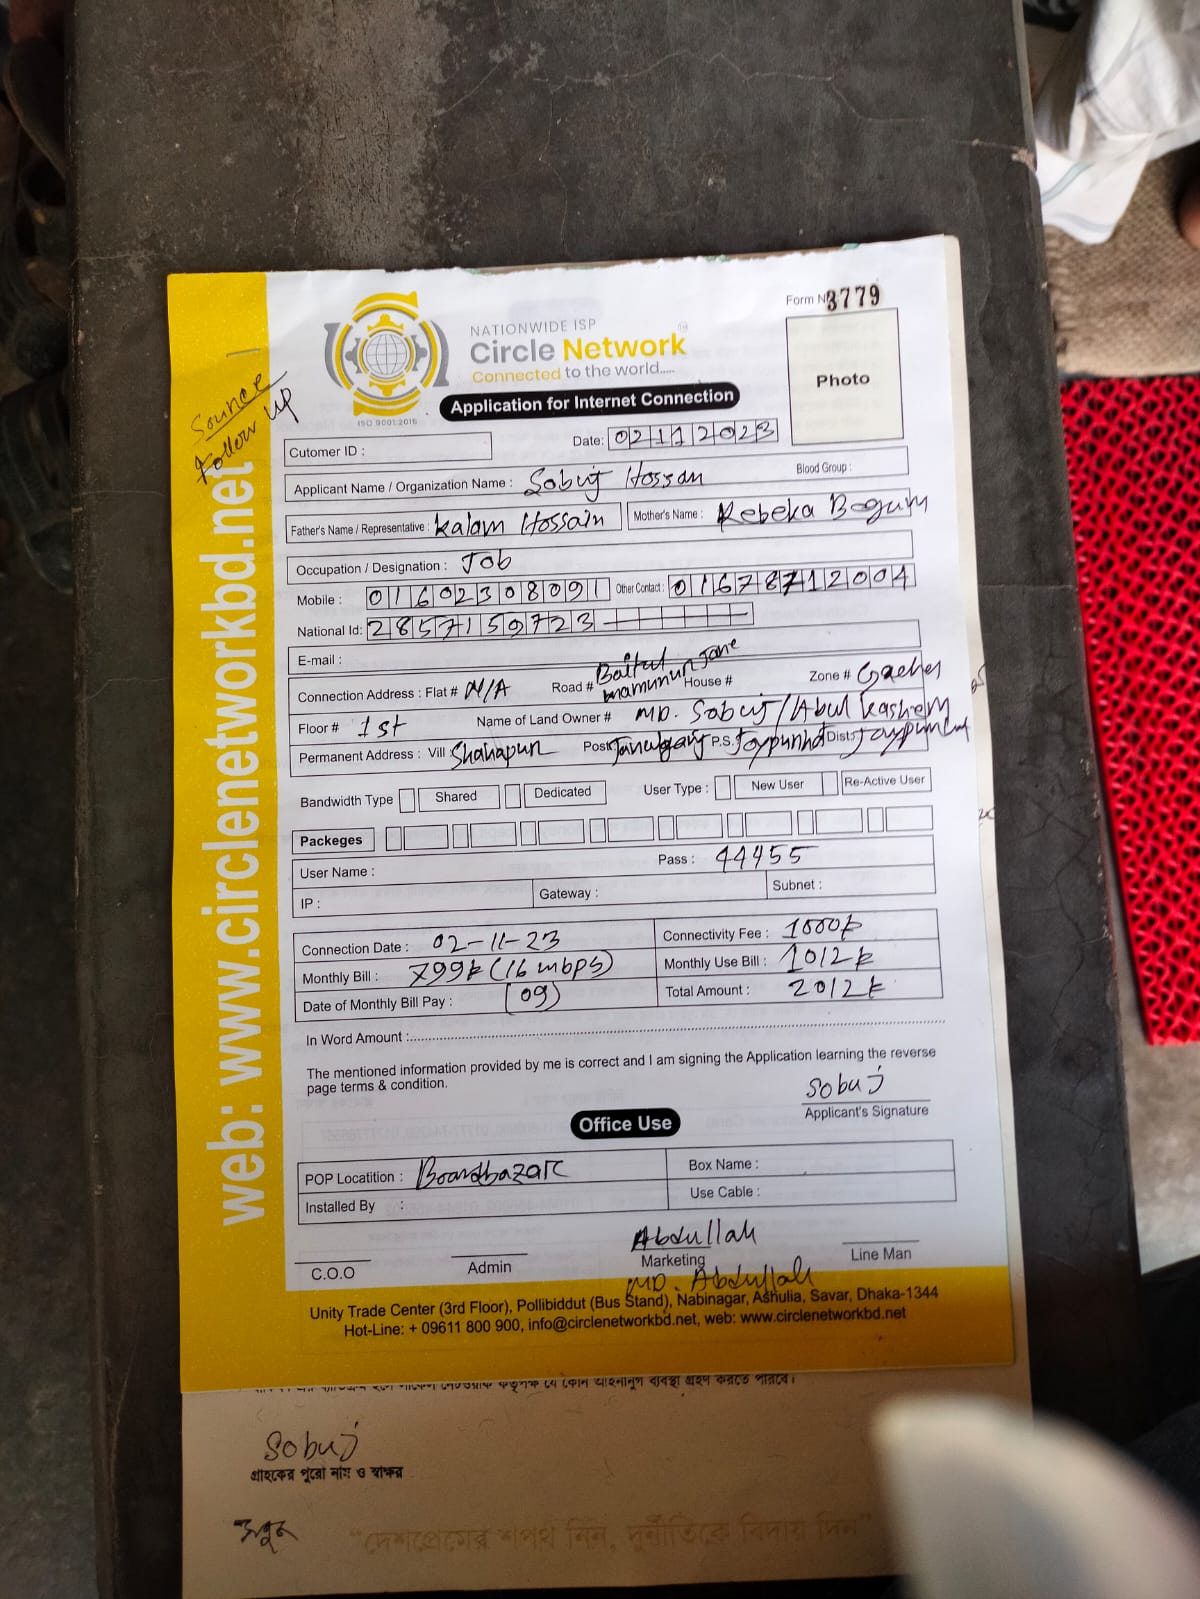 Form N 3779
NATIONWIDE ISP
Circle Network
Connected to the world.....
ISO 9001:2015
Photo
Application for Internet Connection
Source
Follow up
web: www.circlenetworkbd.net
Cutomer ID :
Date: 02112023
Applicant Name / Organization Name : Sobuj Hossan Blood Group :
Father's Name / Representative : Kalam Hossain Mother's Name : Rebeka Begum
Occupation / Designation : Job
Mobile : 01602308091 Other Contact : 01678712004
National Id: 2857159723
E-mail :
Connection Address : Flat # N/A Road # Baitul mamunur House # Zone #
Floor # 1st Name of Land Owner # MD. Sabuj / Abul Kashem
Permanent Address : Vill Shahapur Post P.S. Dist:
Bandwidth Type Shared Dedicated User Type : New User Re-Active User
Packeges
User Name : Pass : 44455
IP : Gateway : Subnet :
Connection Date : 02-11-23 Connectivity Fee : 1000৳
Monthly Bill : 799৳ (16 mbps) Monthly Use Bill : 1012৳
Date of Monthly Bill Pay : (09) Total Amount : 2012৳
In Word Amount :
The mentioned information provided by me is correct and I am signing the Application learning the reverse
page terms & condition.
Sobuj
Applicant's Signature
Office Use
POP Locatition : Boardbazar Box Name :
Installed By : Use Cable :
Abdullah
C.O.O Admin Marketing Line Man
MD. Abdullah
Unity Trade Center (3rd Floor), Pollibiddut (Bus Stand), Nabinagar, Ashulia, Savar, Dhaka-1344
Hot-Line: + 09611 800 900, info@circlenetworkbd.net, web: www.circlenetworkbd.net
নেটওয়ার্ক কর্তৃপক্ষ যে কোন আইনানুগ ব্যবস্থা গ্রহণ করতে পারবে।
Sobuj
গ্রাহকের পুরো নাম ও স্বাক্ষর
"দেশপ্রেমের শপথ নিন, দুর্নীতিকে বিদায় দিন"